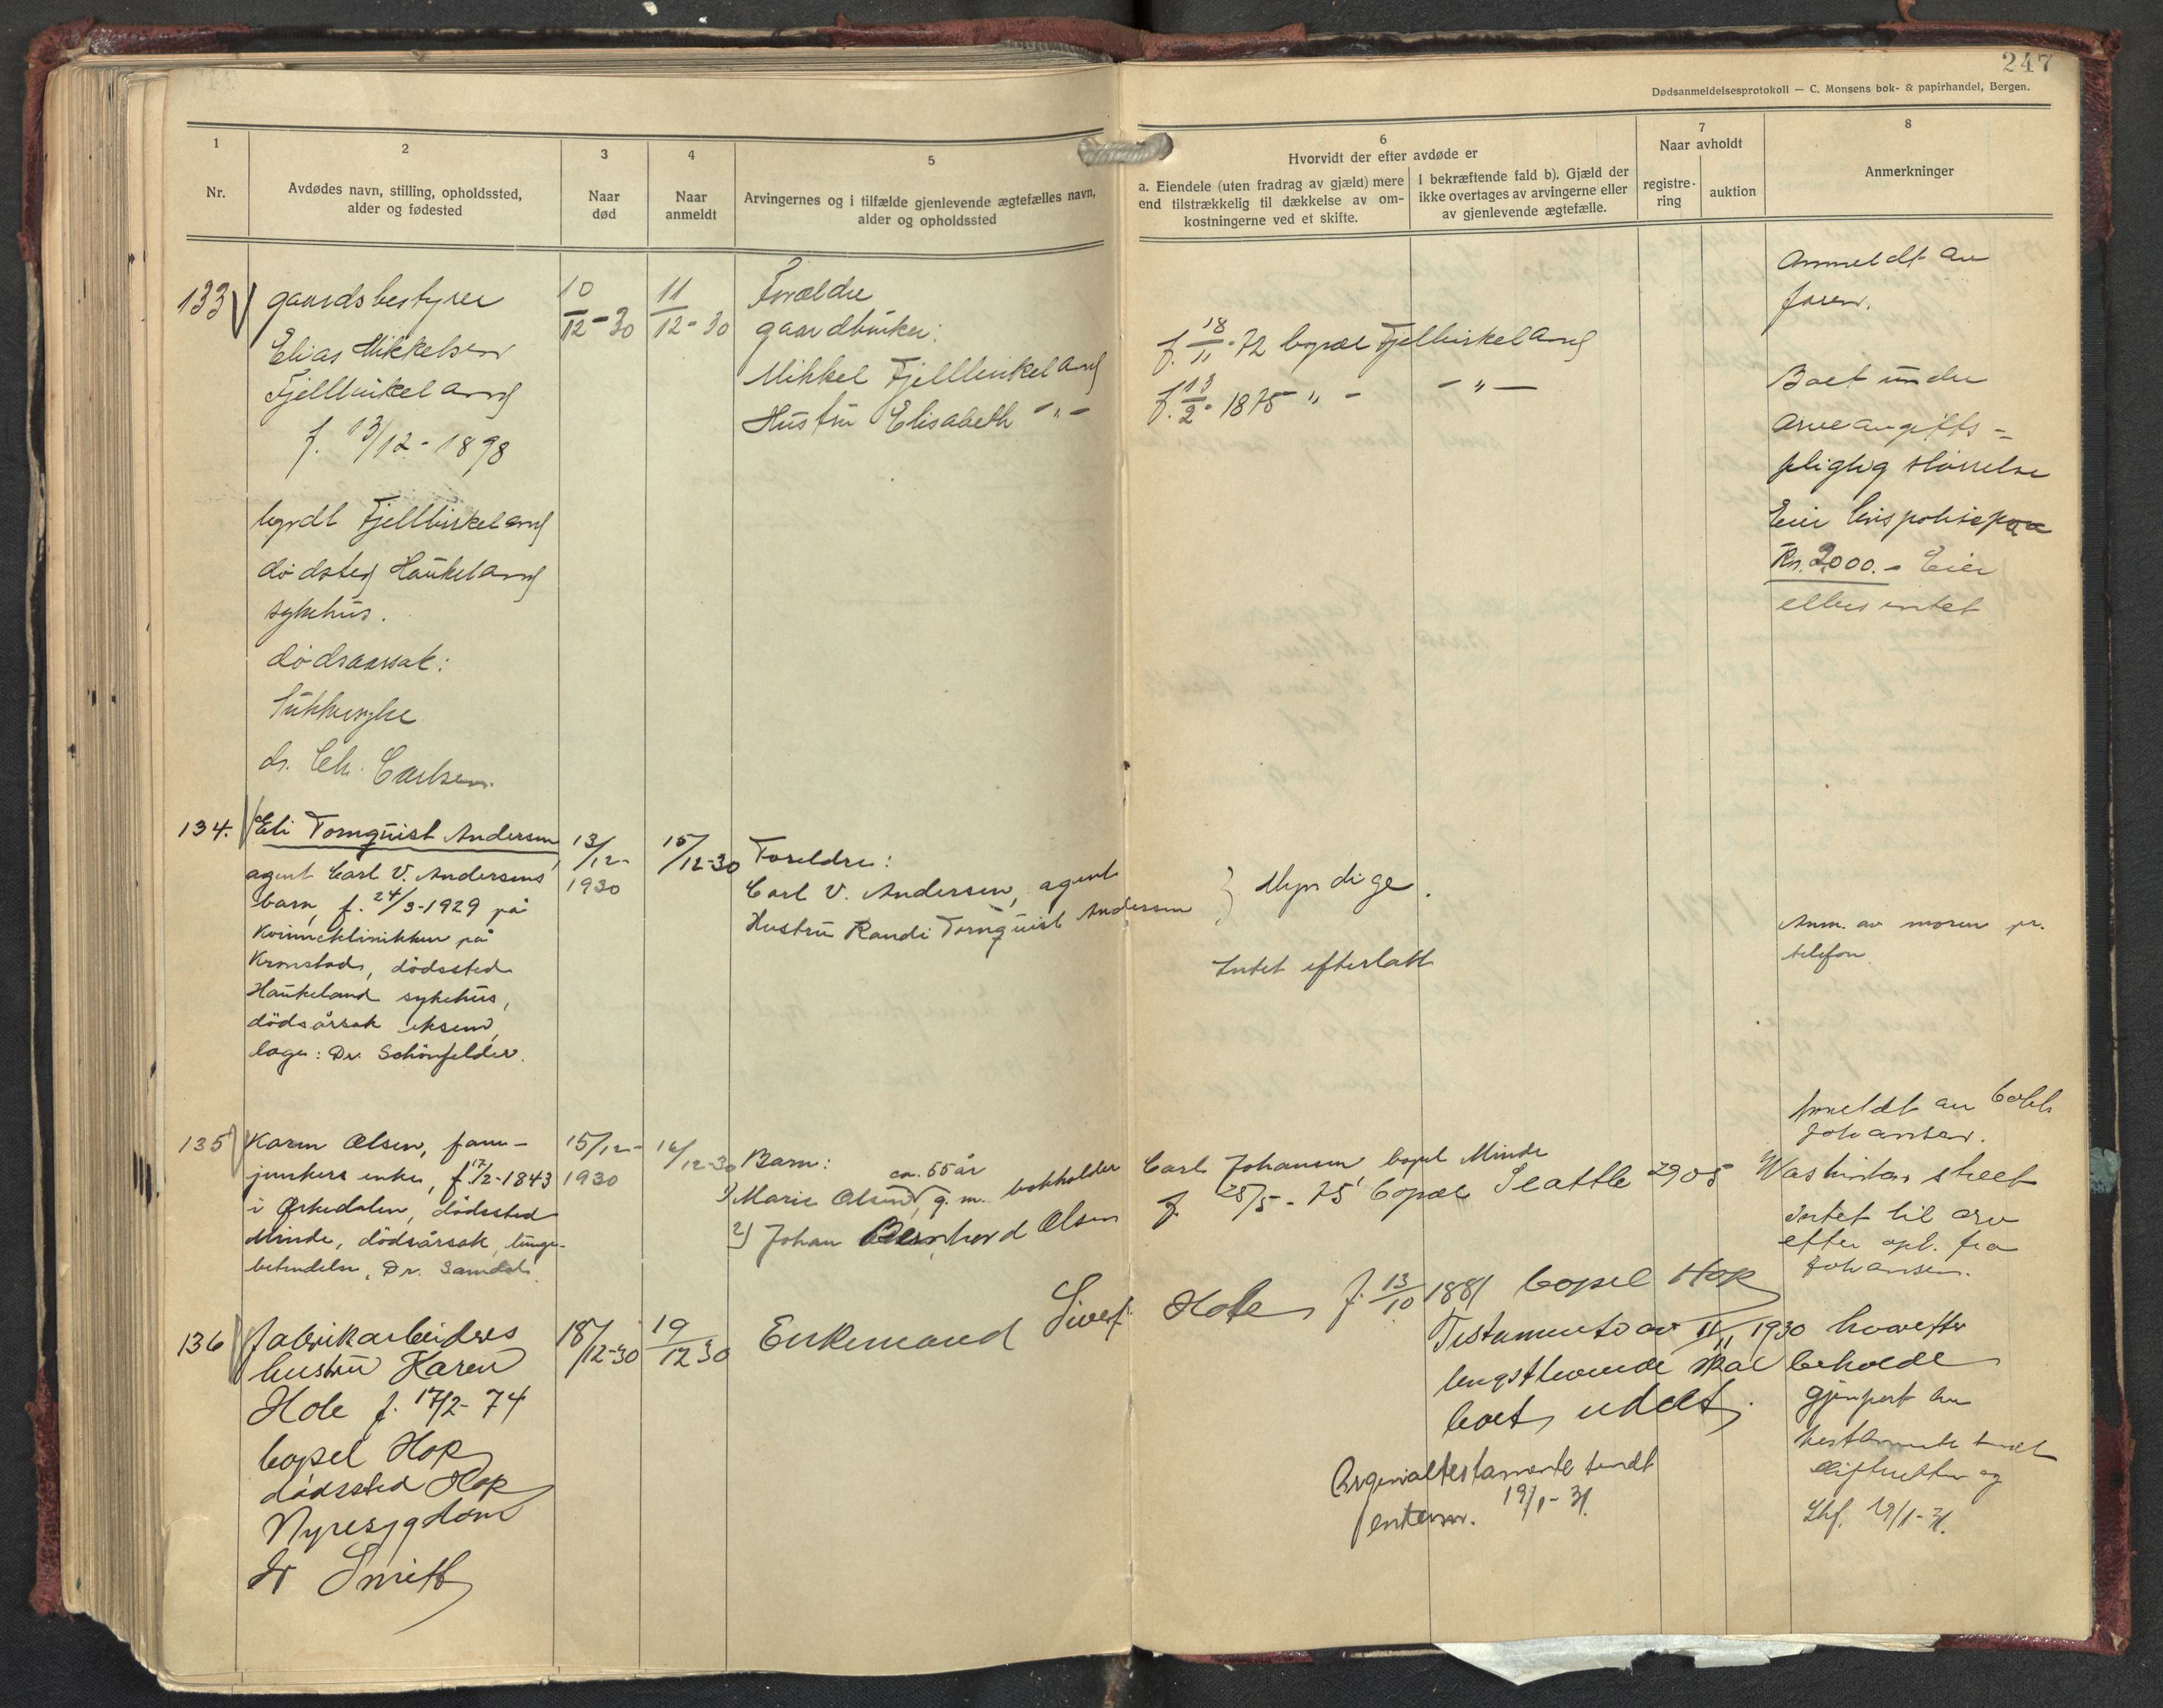 247
Dødsanmeldelsesprotokoll — C. Monsens bok- & papirhandel, Bergen.
1
Nr.
2
Avdødes navn, stilling, opholdssted,
alder og fødested
3
Naar
død
4
Naar
anmeldt
5
Arvingernes og i tilfælde gjenlevende ægtefælles navn,
alder og opholdssted
6
Hvorvidt der efter avdøde er
a. Eiendele (uten fradrag av gjæld) mere
end tilstrækkelig til dækkelse av om-
kostningerne ved et skifte.
I bekræftende fald b). Gjæld der
ikke overtages av arvingerne eller
av gjenlevende ægtefælle.
7
Naar avholdt
registre-
ring
auktion
8
Anmerkninger
133
gaardsbestyrer
Elias Mikkelsen
Fjellbirkeland
f. 13/12-1898
bygdl Fjellbirkeland
dødsted Haukeland
sykehus.
dødsaarsak:
Sukkersyke
dr. Chr. Carlsen.
10/12-30
11/12-30
Forældre
gaardbruker:
Mikkel Fjellbirkeland f. 18/11-72 bopæl Fjellbirkeland
Hustru Elisabeth -"- f. 13/2-1875 "- -"-
Anmeldt av
faren.
Boet under
arveavgifts=
pligtig størrelse
Eier livspolise paa
Kr. 2000.- Eier
ellers intet
134.
Eli Tornquist Andersen,
agent Carl V. Andersens
barn, f. 24/3-1929 på
Kvinneklinikken på
Kronstad, dödssted
Haukeland sykehus,
dödsårsak eksem,
læge: Dr. Schönfelder.
13/12-
1930
15/12-30
Foreldre:
Carl V. Andersen, agent
Hustru Randi Tornquist Andersen
} Myndige.
Intet efterlatt
Anm. av moren pr.
telefon
135
Karen Olsen, fane-
junkers enke, f. 17/2-1843
i Orkedalen, dödssted
Minde, dödsårsak lunge-
betendelse, Dr. Samdal.
15/12-
1930
16/12-30
Barn:
ca. 55 år
1) Marie Olsen, g. m. bokholder Carl Johansen bopel Minde
2) Johan Bernhard Olsen f. 25/5-75 bopæl Seattle 2905 Washinton street
Anmeldt av
Johansen.
Intet til arv
efter opl. fra
Johansen.
136
fabrikarbeiders
hustru Karen
Hole f. 17/2-74
bopel Hop
dødssted Hop
Nyresygdom
dr Smith
18/12-30
19/12 30
Enkemand Sivert Hole f. 13/10 1881 bopel Hop
Testamente av 11/11 1930 hvorefter
lengstlevende skal beholde
boet udelt.
Orginaltestamente sendt
19/1-31.
Gjenpart av
testamente sendt
skifteretten og
Lhf. 19/1-31.